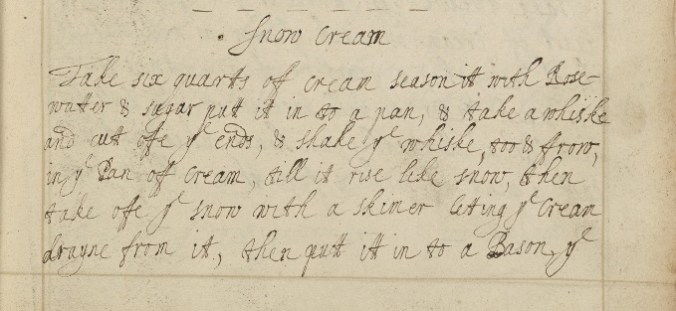 Snow Cream
Take six quarts of cream season it with Rose-
watter & sugar putt it in to a pan, & take a whiske
and cut ofe yᵉ ends, & shake yᵉ whiske, too & frow,
in yᵉ Pan of cream, till it rise like snow, then
take ofe yᵉ snow with a skimer leting yᵉ Crean
drayne from it, then putt itt in to a Bason, yᵉ